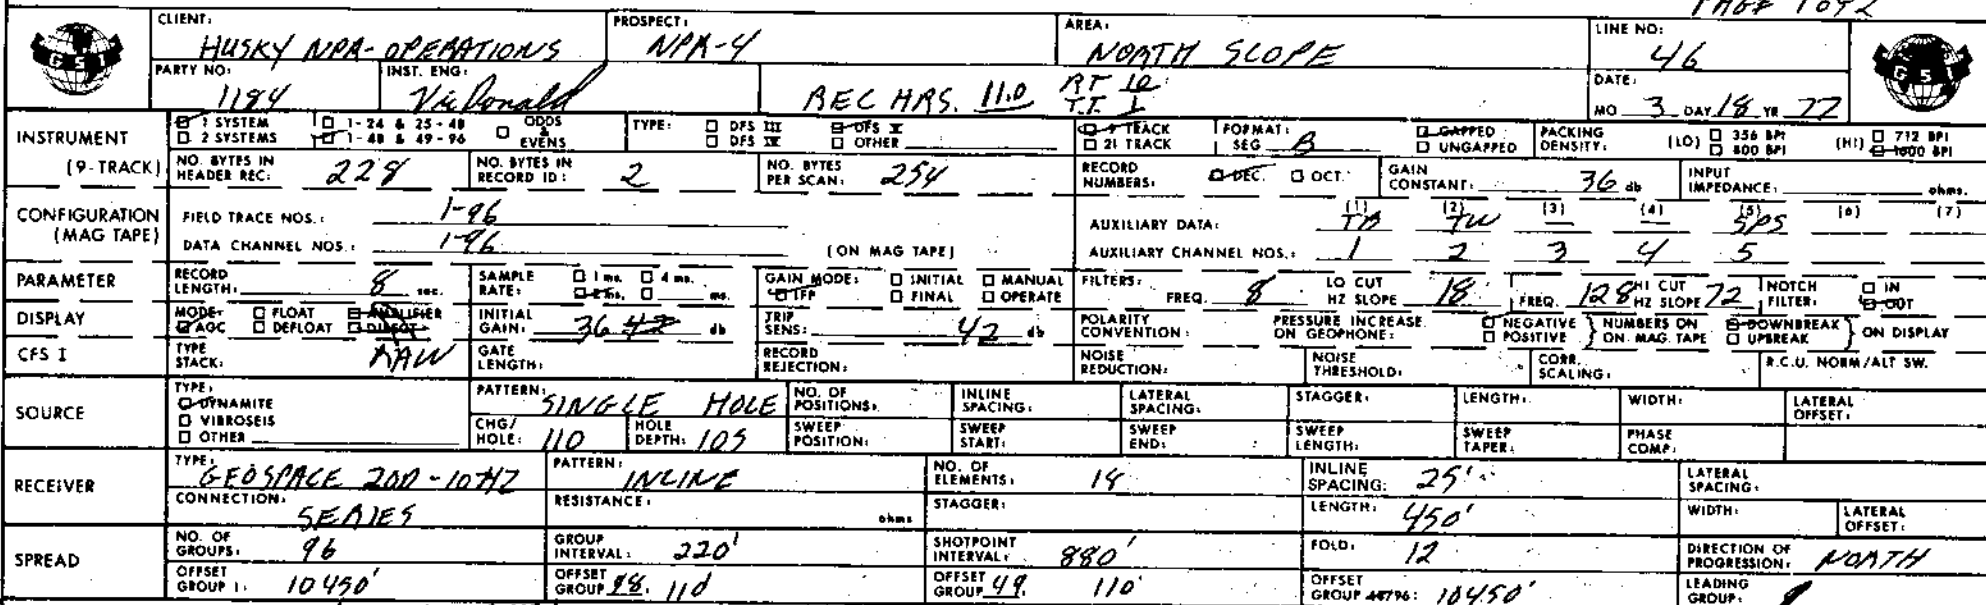 PAGE 1 OF 2
CLIENT: HUSKY NPR-OPERATIONS PROSPECT: NPR-4 AREA: NORTH SLOPE LINE NO: 46
GSI GSI
PARTY NO: 1184 INST. ENG: Vic Donald REC HRS. 11.0 RT 10 T.T. 1 DATE: MO 3 DAY 18 YR 77
INSTRUMENT (9-TRACK)
1 SYSTEM 1-24 & 25-48 ODDS & EVENS TYPE: DFS III DFS V 9 TRACK FORMAT: SEG B GAPPED PACKING DENSITY: (LO) 356 BPI (HI) 712 BPI
2 SYSTEMS 1-48 & 49-96 DFS IV OTHER 21 TRACK UNGAPPED 800 BPI 1600 BPI
NO. BYTES IN HEADER REC: 228 NO. BYTES IN RECORD ID: 2 NO. BYTES PER SCAN: 254 RECORD NUMBERS: DEC. OCT. GAIN CONSTANT: 36 db INPUT IMPEDANCE: ohms.
CONFIGURATION (MAG TAPE)
FIELD TRACE NOS.: 1-96 AUXILIARY DATA: (1) TB (2) TW (3) — (4) — (5) SPS (6) (7)
DATA CHANNEL NOS.: 1-96 (ON MAG TAPE) AUXILIARY CHANNEL NOS.: 1 2 3 4 5
PARAMETER RECORD LENGTH: 8 sec. SAMPLE RATE: 1 ms. 4 ms. 2 ms. ms. GAIN MODE: INITIAL MANUAL IFP FINAL OPERATE FILTERS: FREQ. 8 LO CUT HZ SLOPE 18 FREQ. 128 HI CUT HZ SLOPE 72 NOTCH FILTER: IN OUT
DISPLAY MODE: FLOAT AMPLIFIER AGC DEFLOAT DIRECT INITIAL GAIN: 36 42 db TRIP SENS: 42 db POLARITY CONVENTION: PRESSURE INCREASE ON GEOPHONE: NEGATIVE POSITIVE NUMBERS ON ON MAG. TAPE DOWNBREAK UPBREAK ON DISPLAY
CFS I TYPE STACK: RAW GATE LENGTH: RECORD REJECTION: NOISE REDUCTION: NOISE THRESHOLD: CORR. SCALING: R.C.U. NORM/ALT SW.
SOURCE TYPE: DYNAMITE VIBROSEIS OTHER
PATTERN: SINGLE HOLE NO. OF POSITIONS: INLINE SPACING: LATERAL SPACING: STAGGER: LENGTH: WIDTH: LATERAL OFFSET:
CHG/HOLE: 110 HOLE DEPTH: 105 SWEEP POSITION: SWEEP START: SWEEP END: SWEEP LENGTH: SWEEP TAPER: PHASE COMP:
RECEIVER TYPE: GEOSPACE 20D-10HZ PATTERN: INLINE NO. OF ELEMENTS: 18 INLINE SPACING: 25' LATERAL SPACING:
CONNECTION: SERIES RESISTANCE: ohms STAGGER: LENGTH: 450' WIDTH: LATERAL OFFSET:
SPREAD NO. OF GROUPS: 96 GROUP INTERVAL: 220' SHOTPOINT INTERVAL: 880' FOLD: 12 DIRECTION OF PROGRESSION: NORTH
OFFSET GROUP 1: 10450' OFFSET GROUP 48: 110' OFFSET GROUP 49: 110' OFFSET GROUP 48/96: 10450' LEADING GROUP: